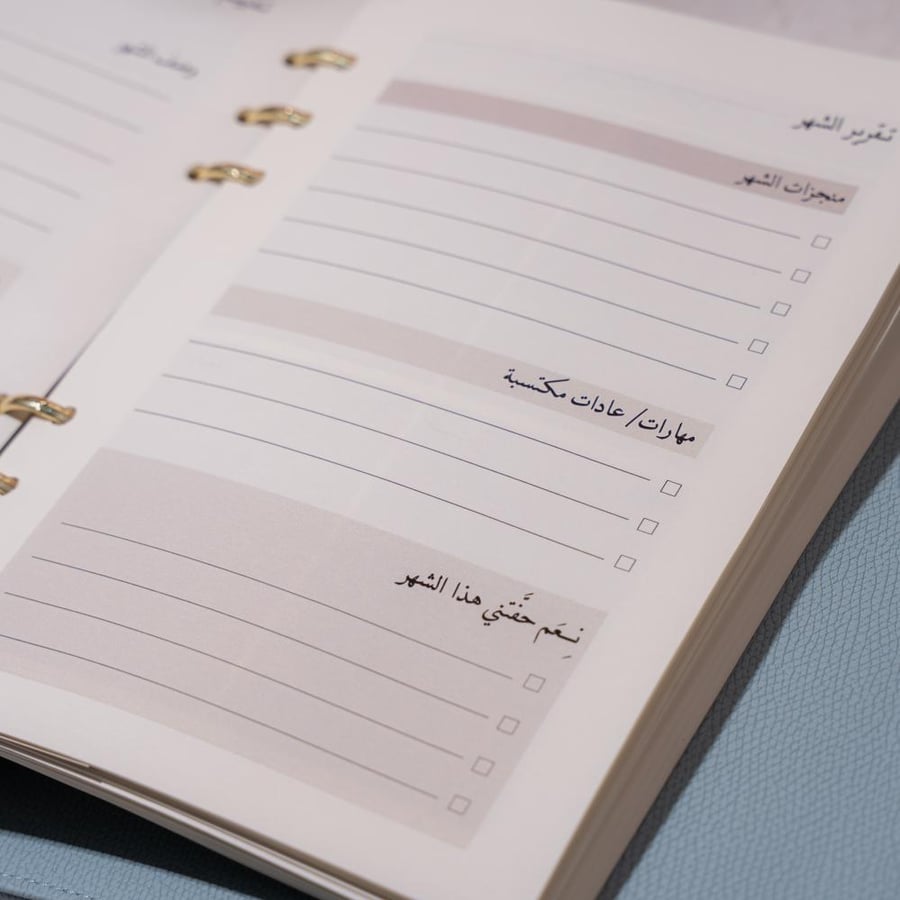 تقرير الشهر
منجزات الشهر
مهارات/ عادات مكتسبة
نِعَم حفَّتني هذا الشهر